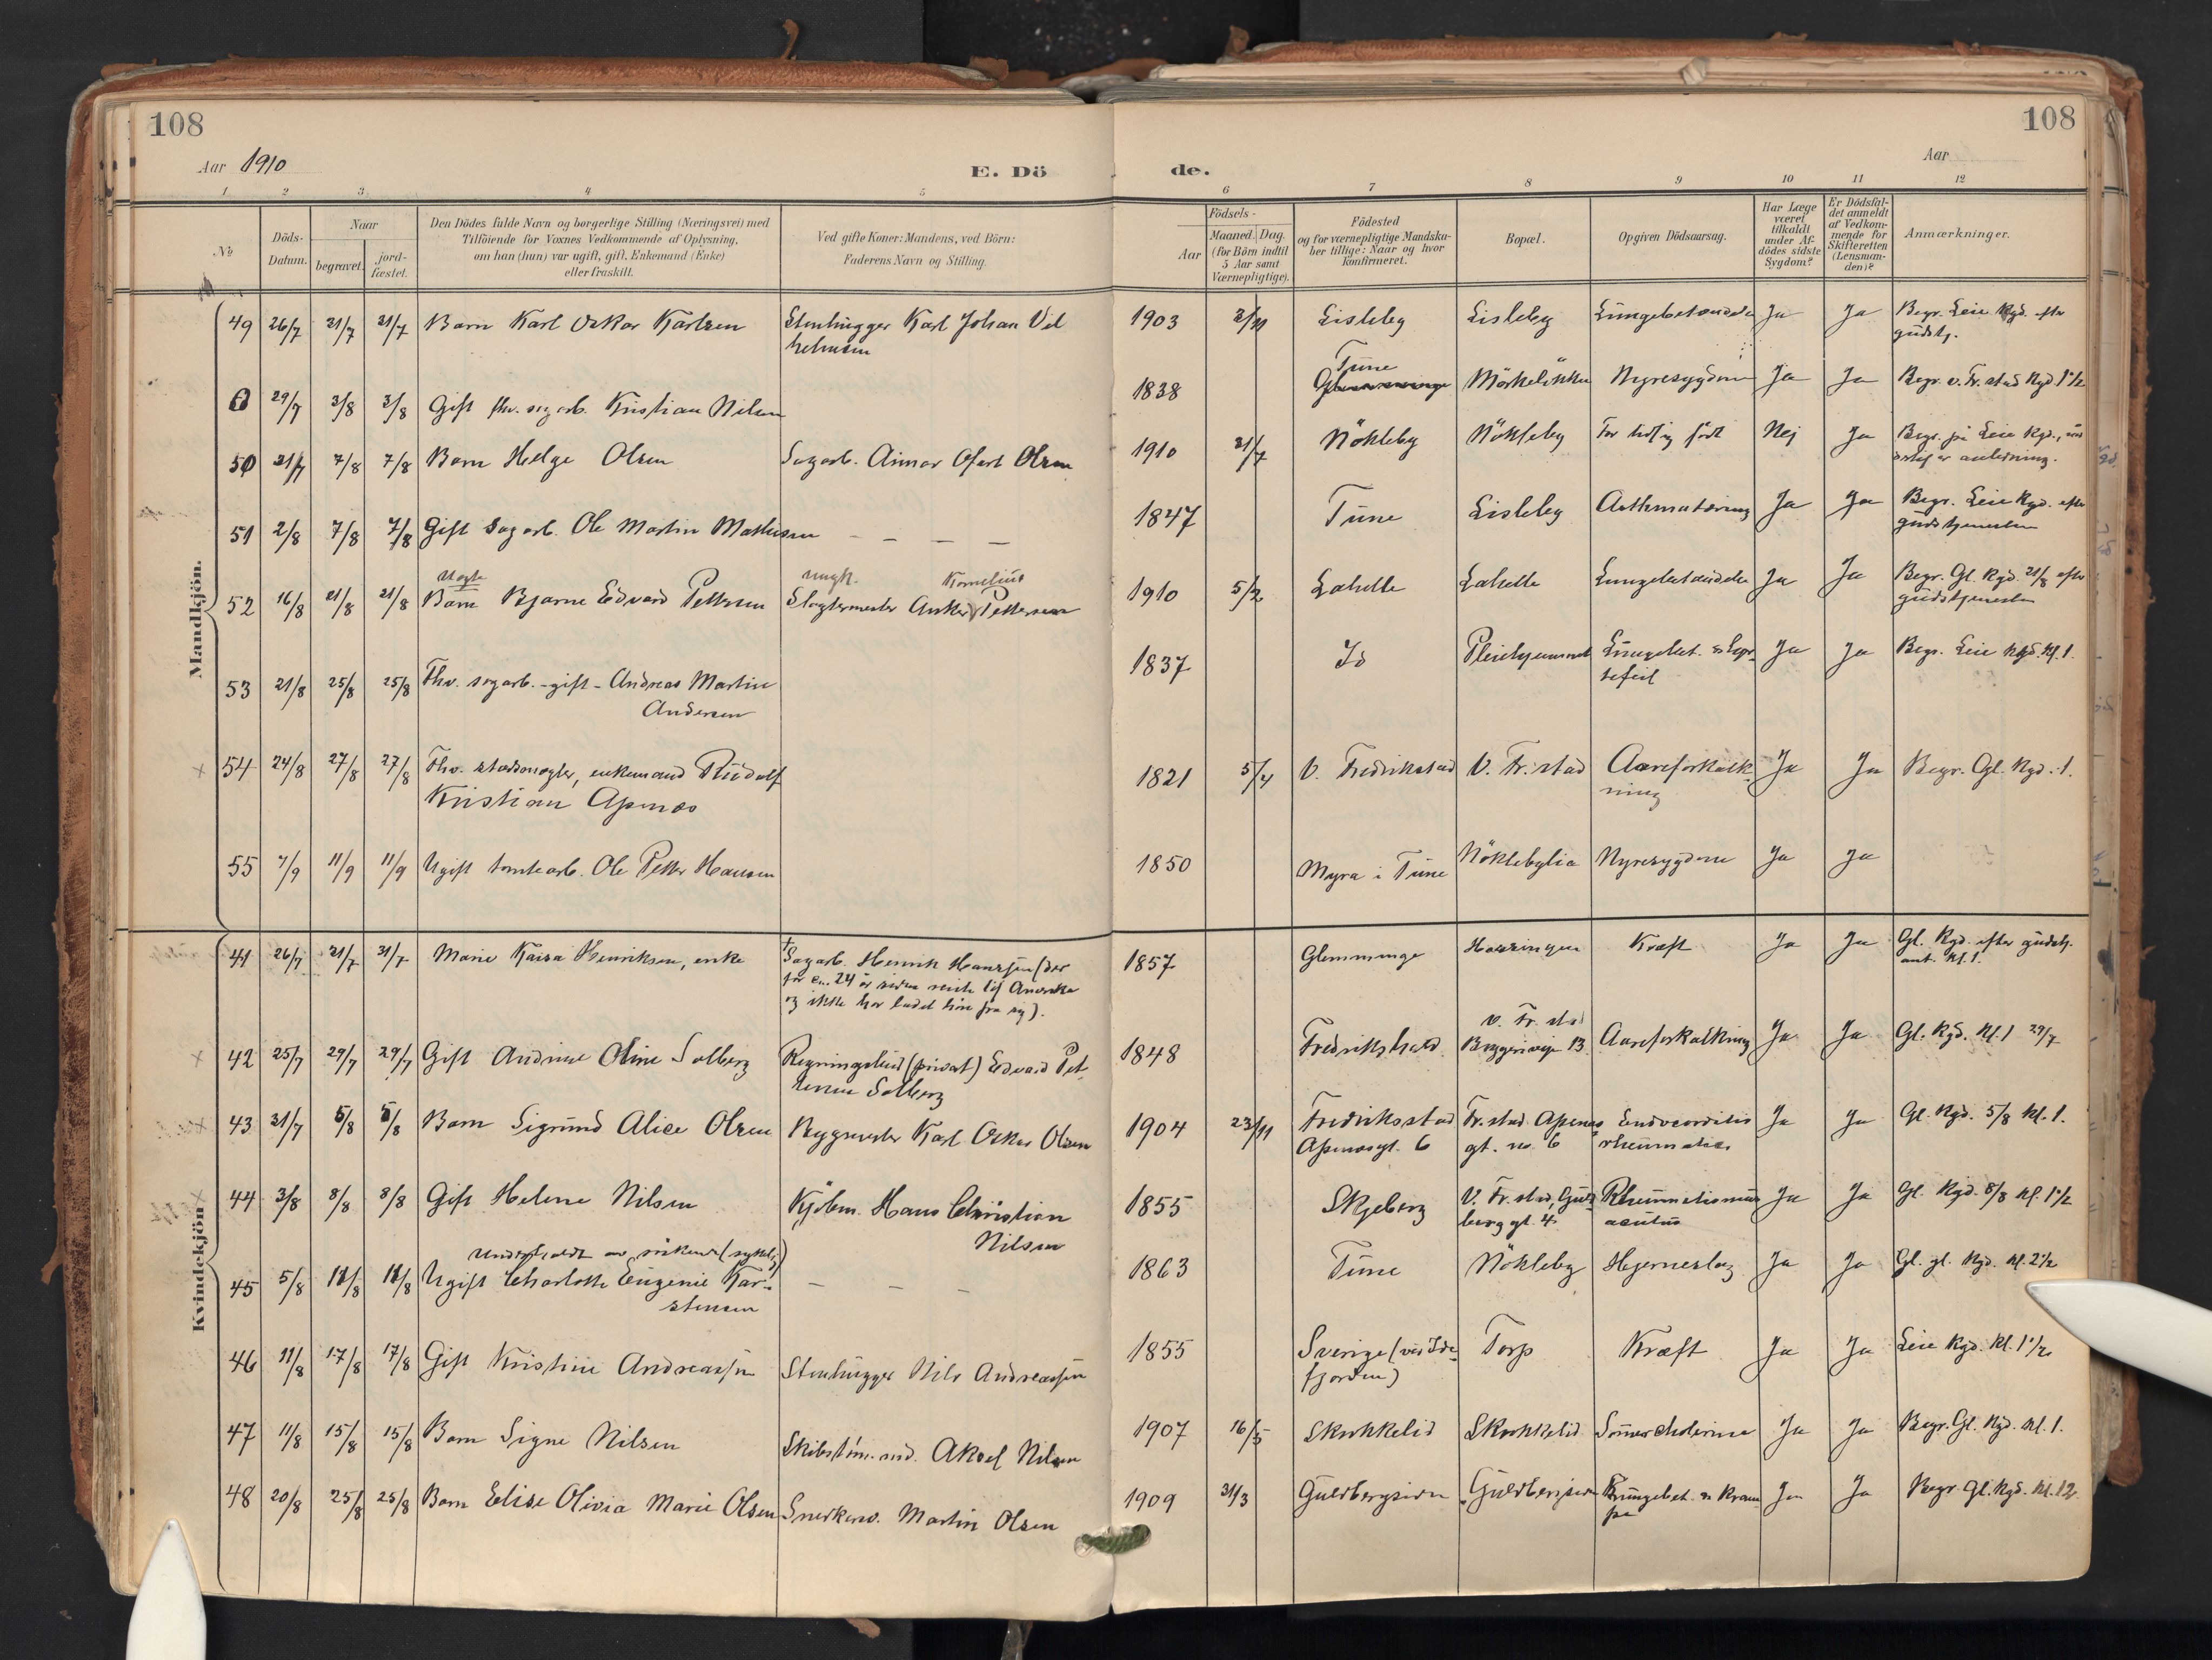 108
108
Aar 1910
E. Dö
de.
Aar
1 2 3 4 5 6 7 8 9 10 11 12
No
Döds-
Datum.
Naar
begravet.
jord-
fæstet.
Den Dödes fulde Navn og borgerlige Stilling (Næringsvei) med
Tilföiende for Voxnes Vedkommende af Oplysning,
om han (hun) var ugift, gift, Enkemand (Enke)
eller fraskilt.
Ved gifte Koner: Mandens, ved Börn:
Faderens Navn og Stilling.
Födsels-
Aar
Maaned. Dag.
(for Börn indtil
5 Aar samt
Værnepligtige).
Födested
og for værnepligtige Mandska-
ber tillige: Naar og hvor
konfirmeret.
Bopæl.
Opgiven Dödsaarsag.
Har Læge
været
tilkaldt
under Af-
dödes sidste
Sygdom?
Er Dödsfal-
det anmeldt
af Vedkom-
mende for
Skifteretten
(Lensman-
den)?
Anmærkninger.
Mandkjön.
49 26/7 31/7 31/7 Barn Karl Oskar Karlsen Stenhugger Karl Johan Vil
helmsen 1903 2/11 Lisleby Lisleby Lungebetændelse Ja Ja Begr. Leie Kgd. efter
gudstj.
29/7 3/8 3/8 Gift fhv. sagarb. Kristian Nilsen 1838 Tune
Glemminge Mörkelökka Nyresygdom Ja Ja Begr. v. Fr.stad Kgd 1 1/2
50 31/7 7/8 7/8 Barn Helge Olsen Sagarb. Aimar Olsen 1910 31/7 Nökleby Nökleby For tidlig födt Nej Ja Begr. på Leie Kgd.,
anledning.
51 2/8 7/8 7/8 Gift Sagarb. Ole Martin Mathisen — — — — 1847 Tune Lisleby Ja Ja Begr. Leie Kgd. efter
gudstjenesten
52 16/8 21/8 21/8 Uægte
Barn Bjarne Edvard Pettersen ungk. Kornelius
Slagtermester Anker Pettersen 1910 5/2 Lahelle Lahelle Lungebetændelse Ja Ja Begr. Gl. Kgd. 21/8 efter
gudstjenesten
53 21/8 25/8 25/8 Fhv. sagarb. - gift - Andreas Martin
Andersen 1837 Id Pleiehjemmet Lungebet. Ja Ja Begr. Leie Kgd. Kl. 1.
54 24/8 27/8 27/8 Fhv. stadsmægler, enkemand Rudolf
Kristian Apenæs 1821 5/4 V. Fredrikstad V. Fr.stad Aareforkalk-
ning Ja Ja Begr. Gl. Kgd. 1.
55 7/9 11/9 11/9 Ugift tomtearb. Ole Petter Hansen 1850 Myra i Tune Nöklebylia Nyresygdom Ja Ja
Kvindekjön
41 26/7 31/7 31/7 Marie Kaisa Henriksen, enke † Sagarb. Henrik Hanssen (der
for ca. 24 år siden reiste til Amerika
og ikke har ladet höre fra sig). 1857 Glemminge Kræft Ja Ja Gl. Kgd. efter gudstj.
ant. kl. 1.
42 25/7 29/7 29/7 Gift Andrine Oline Solberg Regningsbud (privat) Edvard Pet-
tersen Solberg 1848 Fredrikshald v. Fr. stad
Bryggeriveien 13 Aareforkalkning Ja Ja Gl. Kgd. Kl. 1 29/7
43 31/7 5/8 5/8 Barn Sigrund Alice Olsen Bygmester Karl Oskar Olsen 1904 23/11 Fredriksstad
Apenæsgt. 6 Fr.stad. Apenæs
gt. no. 6 Endocarditis
rheumatica Ja Ja Gl. Kgd. 5/8 kl. 1.
44 3/8 8/8 8/8 Gift Helene Nilsen Kjöbm. Hans Christian
Nilsen 1855 Skjeberg V. Fr. stad, Guld-
berggt. 4. Rheumatismus
acutus Ja Ja Gl. Kgd. 8/8 kl. 1 1/2
45 5/8 11/8 11/8 Underholdt av söskende (sykelig)
Ugift Charlotte Eugenie Kar-
stensen — — — 1863 Tune Nökleby Hjerneslag Ja Ja Gl. gl. Kgd. kl. 2 1/2
46 11/8 17/8 17/8 Gift Kristine Andreassen Stenhugger Nils Andreassen 1855 Sverige (ved Ide-
fjorden) Torp Kræft Ja Ja Leie Kgd. Kl. 1 1/2
47 11/8 15/8 15/8 Barn Signe Nilsen Skibstöm.md. Aksel Nilsen 1907 16/5 Skokkelid Skokkelid Sommercholerine Ja Ja Begr. Gl. Kgd. kl. 1.
48 20/8 25/8 25/8 Barn Elise Olivia Marie Olsen Snekkersv. Martin Olsen 1909 31/3 Guldbergsiden Guldbergsiden Lungebet. og kram-
pe Ja Ja Begr. Gl. Kgd. kl. 12.